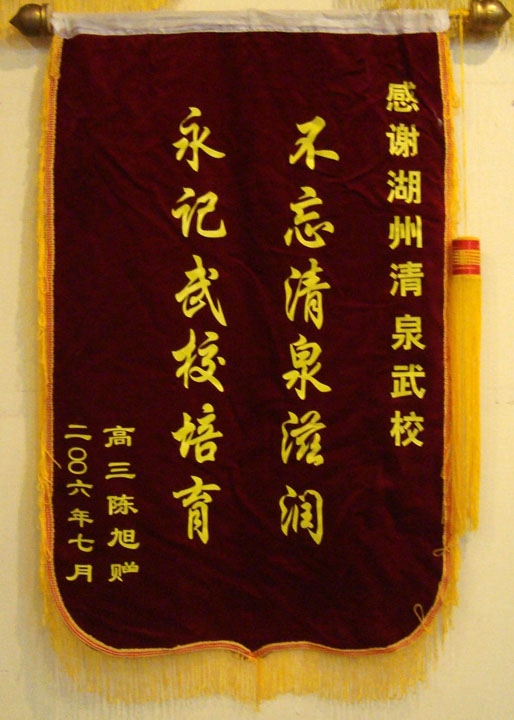 感谢湖州清泉武校
不忘清泉滋润
永记武校培育
高三陈旭赠
二〇〇六年七月